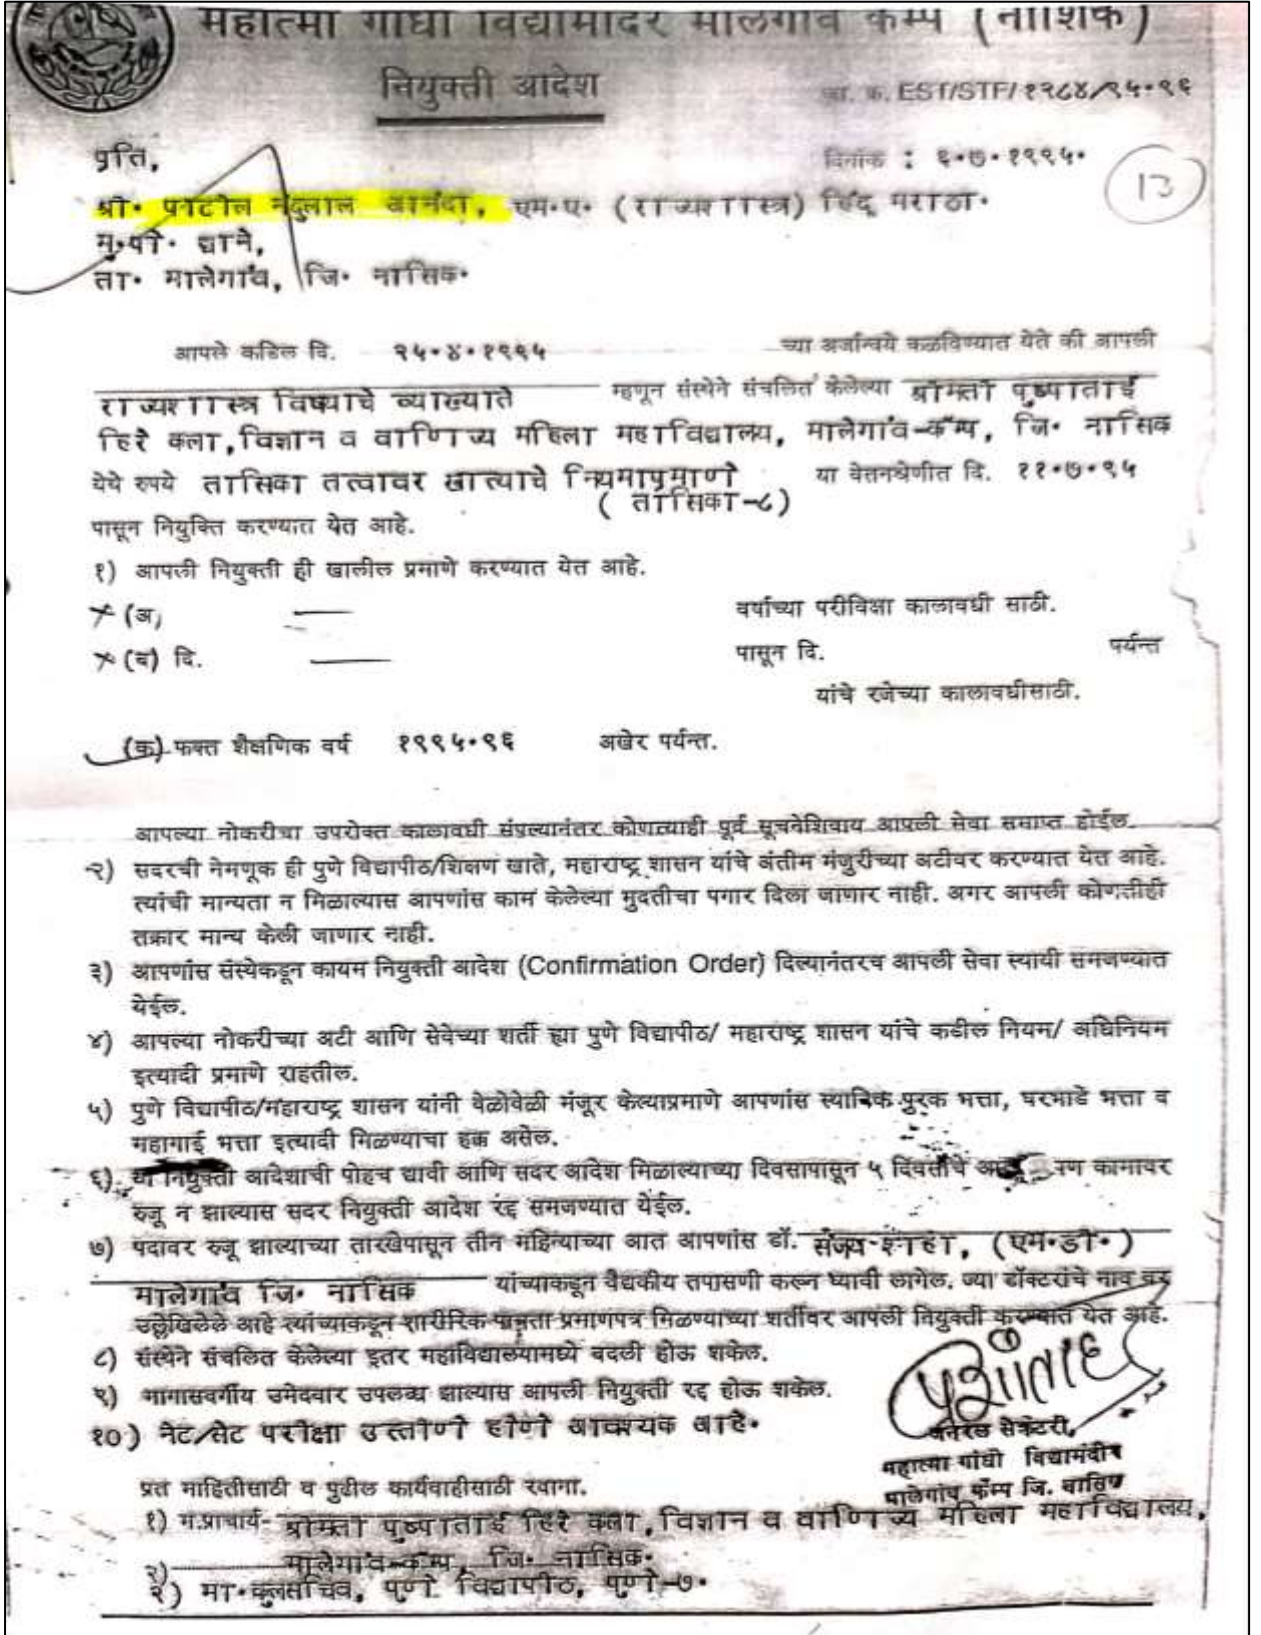 महात्मा गांधी विद्यामंदिर मालेगांव कॅम्प (नाशिक)
नियुक्ती आदेश
जा. क्र. EST/STF/१२८४/९५-९६
प्रति,
दिनांक : ६-७-१९९५.
13
श्री. पाटील नंदुलाल आनंदा, एम.ए. (राज्यशास्त्र) हिंदू मराठा.
मु.पो. द्याने,
ता. मालेगांव, जि. नासिक.
आपले कडिल दि. २५-४-१९९५ च्या अर्जान्वये कळविण्यात येते की आपली
राज्यशास्त्र विषयाचे व्याख्याते म्हणून संस्थेने संचलित केलेल्या श्रीमती पुष्पाताई
हिरे कला,विज्ञान व वाणिज्य महिला महाविद्यालय, मालेगांव-कॅम्प, जि. नासिक
येथे रुपये तासिका तत्वावर खात्याचे नियमाप्रमाणे या वेतनश्रेणीत दि. ११-७-९५
( तासिका-८)
पासून नियुक्ति करण्यात येत आहे.
१) आपली नियुक्ती ही खालील प्रमाणे करण्यात येत आहे.
(अ) वर्षाच्या परीविक्षा कालावधी साठी.
(ब) दि. पासून दि. पर्यन्त
यांचे रजेच्या कालावधीसाठी.
(क) फक्त शैक्षणिक वर्ष १९९५-९६ अखेर पर्यन्त.
आपल्या नोकरीचा उपरोक्त कालावधी संपल्यानंतर कोणत्याही पूर्व सूचनेशिवाय आपली सेवा समाप्त होईल.
२) सदरची नेमणूक ही पुणे विद्यापीठ/शिक्षण खाते, महाराष्ट्र शासन यांचे अंतीम मंजुरीच्या अटीवर करण्यात येत आहे.
त्यांची मान्यता न मिळाल्यास आपणांस काम केलेल्या मुदतीचा पगार दिला जाणार नाही. अगर आपली कोणतीही
तक्रार मान्य केली जाणार नाही.
३) आपणांस संस्थेकडून कायम नियुक्ती आदेश (Confirmation Order) दिल्यानंतरच आपली सेवा स्थायी समजण्यात
येईल.
४) आपल्या नोकरीच्या अटी आणि सेवेच्या शर्ती ह्या पुणे विद्यापीठ/ महाराष्ट्र शासन यांचे कडील नियम/ अधिनियम
इत्यादी प्रमाणे राहतील.
५) पुणे विद्यापीठ/महाराष्ट्र शासन यांनी वेळोवेळी मंजूर केल्याप्रमाणे आपणांस स्थानिक पुरक भत्ता, घरभाडे भत्ता व
महागाई भत्ता इत्यादी मिळण्याचा हक्क असेल.
६) या नियुक्ती आदेशाची पोहच द्यावी आणि सदर आदेश मिळाल्याच्या दिवसापासून ५ दिवसांचे कामावर
रुजू न झाल्यास सदर नियुक्ती आदेश रद्द समजण्यात येईल.
७) पदावर रुजू झाल्याच्या तारखेपासून तीन महिन्याच्या आत आपणांस डॉ. संजय शहा, (एम.डी.)
मालेगांव जि. नासिक यांच्याकडून वैद्यकीय तपासणी करून घ्यावी लागेल. ज्या डॉक्टरांचे नाव वर
उल्लेखिलेले आहे त्यांच्याकडून शारीरिक पात्रता प्रमाणपत्र मिळण्याच्या शर्तीवर आपली नियुक्ती करण्यात येत आहे.
८) संस्थेने संचलित केलेल्या इतर महाविद्यालयामध्ये बदली होऊ शकेल.
९) मागासवर्गीय उमेदवार उपलब्ध झाल्यास आपली नियुक्ती रद्द होऊ शकेल.
१०) नेट/सेट परीक्षा उत्तीर्ण होणे आवश्यक आहे.
जनरल सेक्रेटरी,
महात्मा गांधी विद्यामंदीर
मालेगांव कॅम्प जि. नासिक
प्रत माहितीसाठी व पुढील कार्यवाहीसाठी रवाना.
१) मा.प्राचार्य- श्रीमती पुष्पाताई हिरे कला,विज्ञान व वाणिज्य महिला महाविद्यालय,
मालेगांव-कॅम्प, जि. नासिक.
२)
२) मा.कुलसचिव, पुणे विद्यापीठ, पुणे-७.